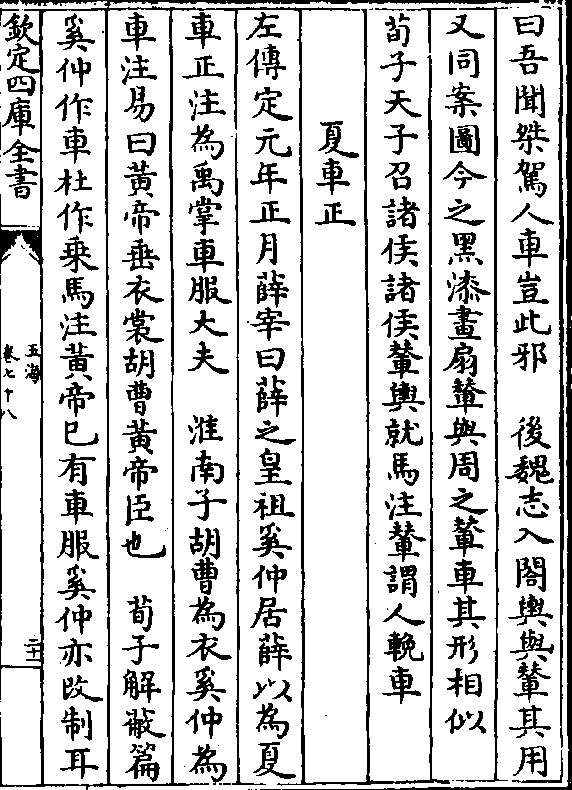 曰吾聞桀駕人車豈此邪　後魏志入閤輿與輦其用
又同案圖今之黑漆畫扇輦與周之輦車其形相似
荀子天子召諸侯諸侯輦輿就馬注輦謂人輓車
夏車正
左傳定元年正月薛宰曰薛之皇祖奚仲居薛以為夏
車正注為禹掌車服大夫　淮南子胡曹為衣奚仲為
車注易曰黃帝垂衣裳胡曹黃帝臣也　荀子解蔽篇
奚仲作車杜作乗馬注黃帝已有車服奚仲亦改制耳
欽定四庫全書
玉海
卷七十八
二十二